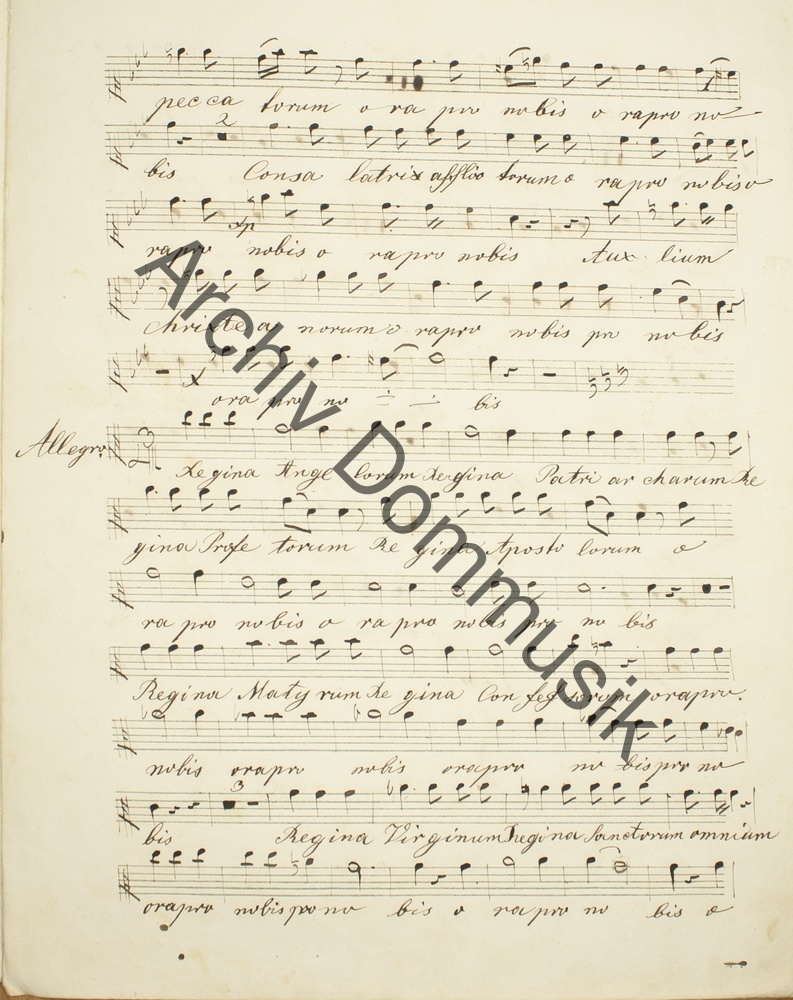 pecca torum o ra pro nobis o rapro no
2
bis Consa latrix afflic torum o rapro nobis o
rapro nobis o rapro nobis Aux lium
Christe a norum o rapro nobis pro nobis
ora pro no bis
Allegro
Regina Ange lorum Regina Patri ar charum Re
gina Profe torum Re gina Aposto lorum o
ra pro nobis o ra pro nobis pro no bis
Regina Maty rum Re gina Con fes sorum orapro.
nobis orapro nobis orapro no bis pro no
3
bis Regina Virginum Regina Sanctorum omnium
orapro nobis pro no bis o rapro no bis o
Archiv Dommusik